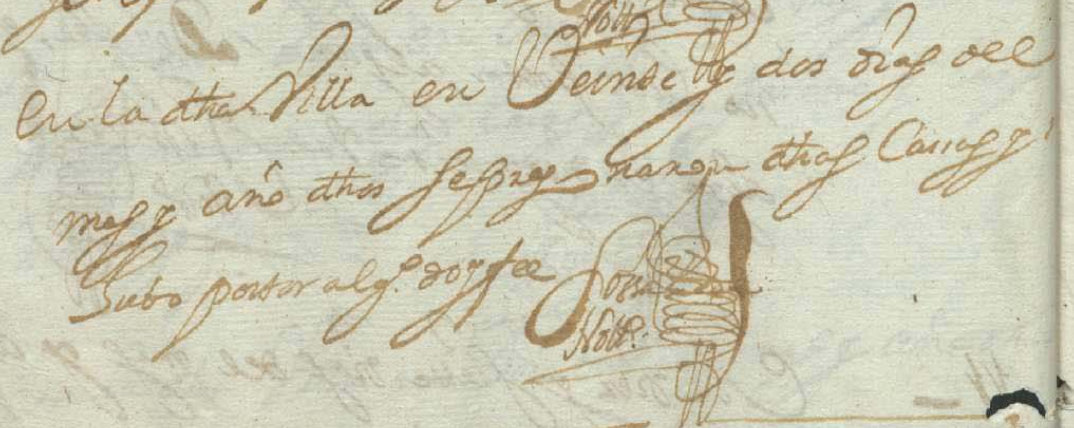 Nott
en la dha Villa en Veinte y dos dias del
mes y año dhos se pregonaron dhas Casas y
Hubo postor al q.e doy fee
Nott.o